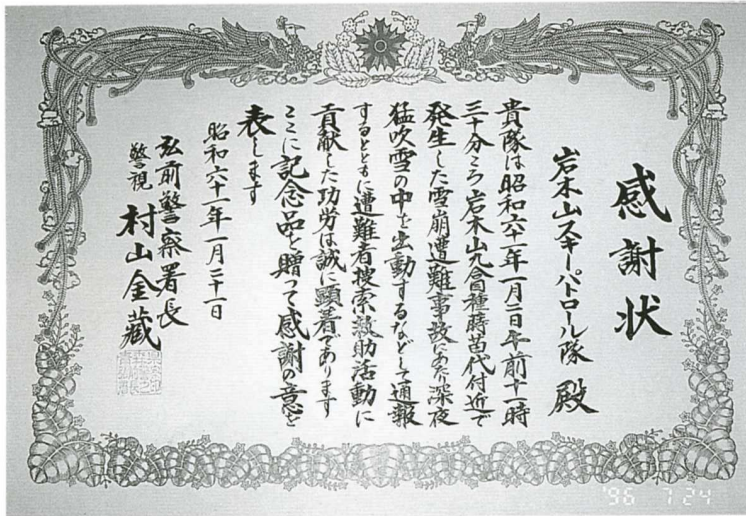 感謝状
岩木山スキーパトロール隊 殿
貴隊は昭和六十一年一月二日午前十一時
三十分ころ岩木山九合目種蒔苗代付近で
発生した雪崩遭難事故にあたり深夜
猛吹雪の中を出動するなどして通報
するとともに遭難者捜索救助活動に
貢献した功労は誠に顕著であります
ここに記念品を贈って感謝の意を
表します
昭和六十一年一月二十一日
弘前警察署長
警視 村山金藏
'96 7 24